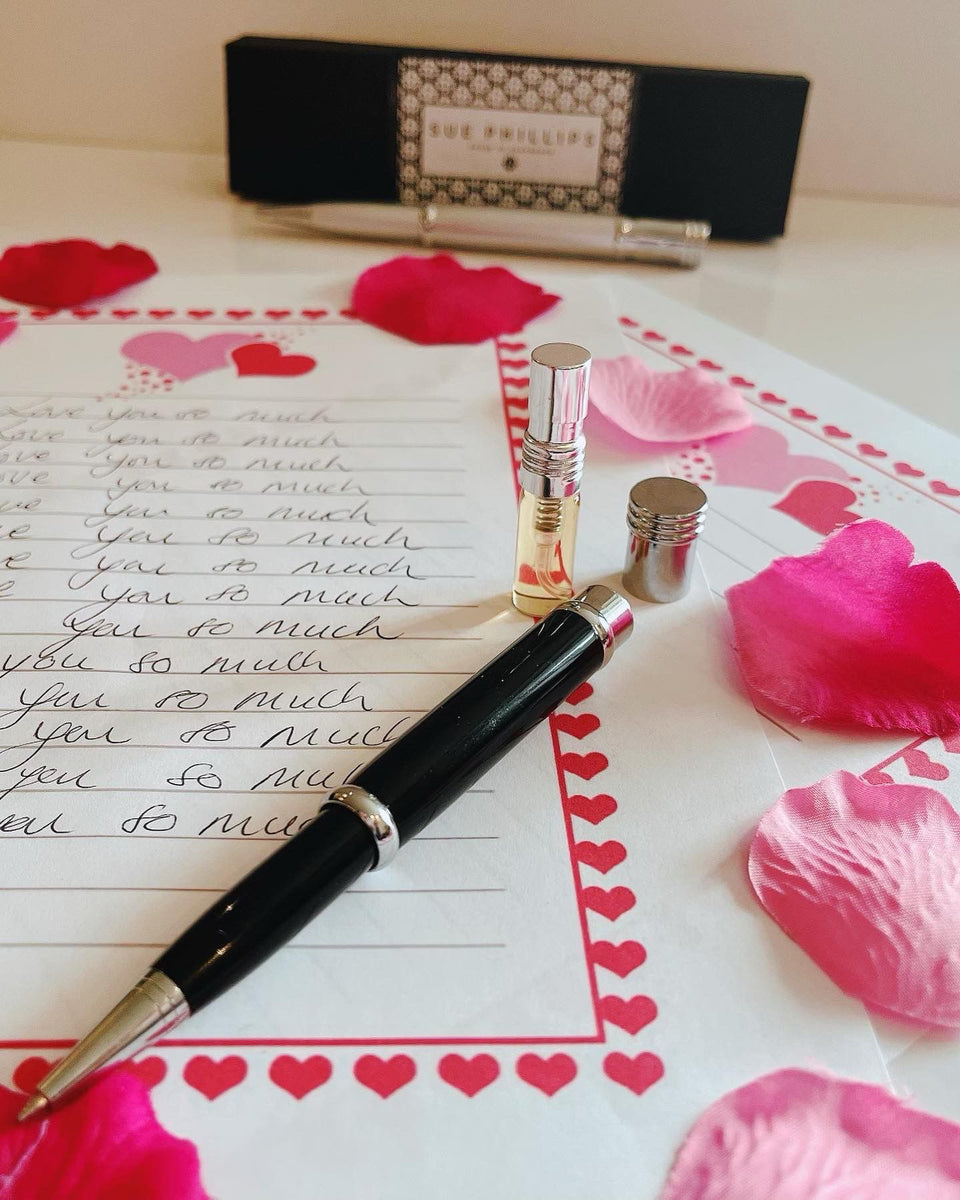 SUE PHILLIPS
Love you so much
Love you so much
ove you so much
ove you so much
ve you so much
e you so much
e you so much
e you so much
you so much
you so much
you so much
you so much
you so mu
you so muc